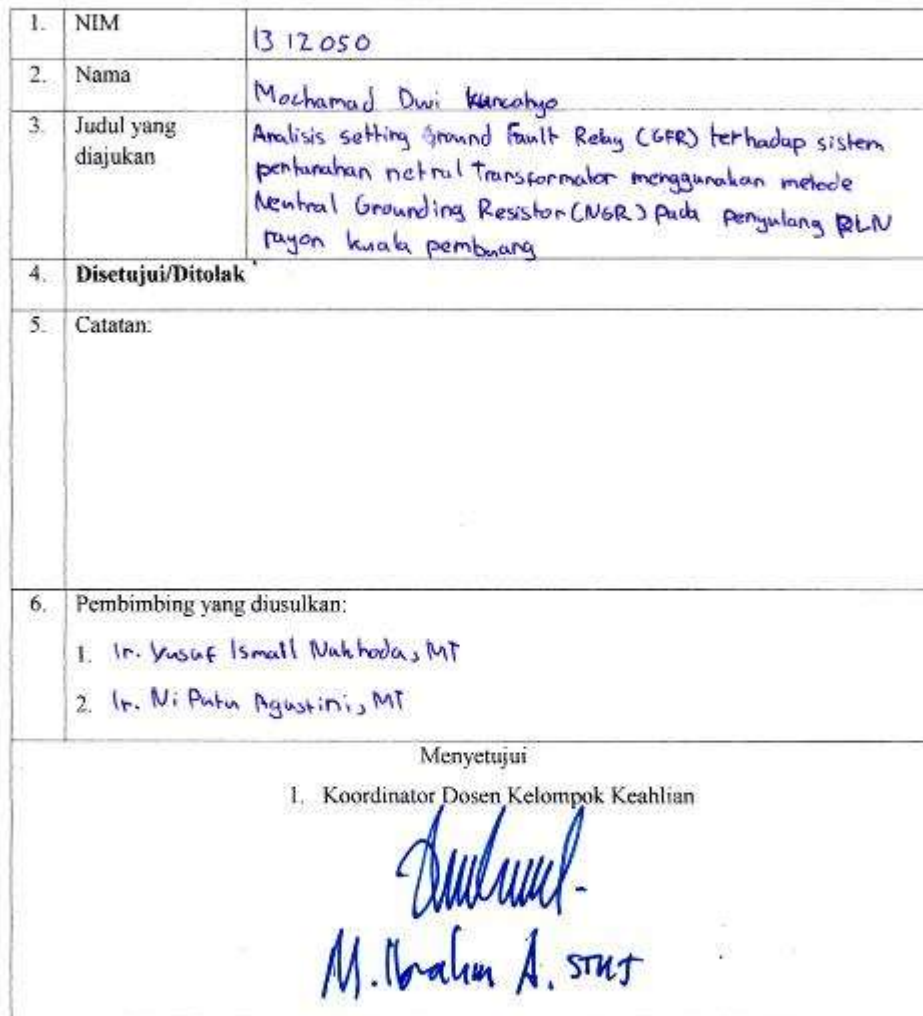 1. NIM 1312050
2. Nama Mochamad Dwi Kuncahyo
3. Judul yang diajukan
Analisis setting Ground Fault Relay (GFR) terhadap sistem
pentanahan netral Transformator menggunakan metode
Neutral Grounding Resistor (NGR) pada penyulang PLN
rayon kuala pembuang
4. Disetujui/Ditolak *
5. Catatan:
6. Pembimbing yang diusulkan:
1. Ir. Yusuf Ismail Nakhoda, MT
2. Ir. Ni Putu Agustini, MT
Menyetujui
1. Koordinator Dosen Kelompok Keahlian
M. Ibrahim A.